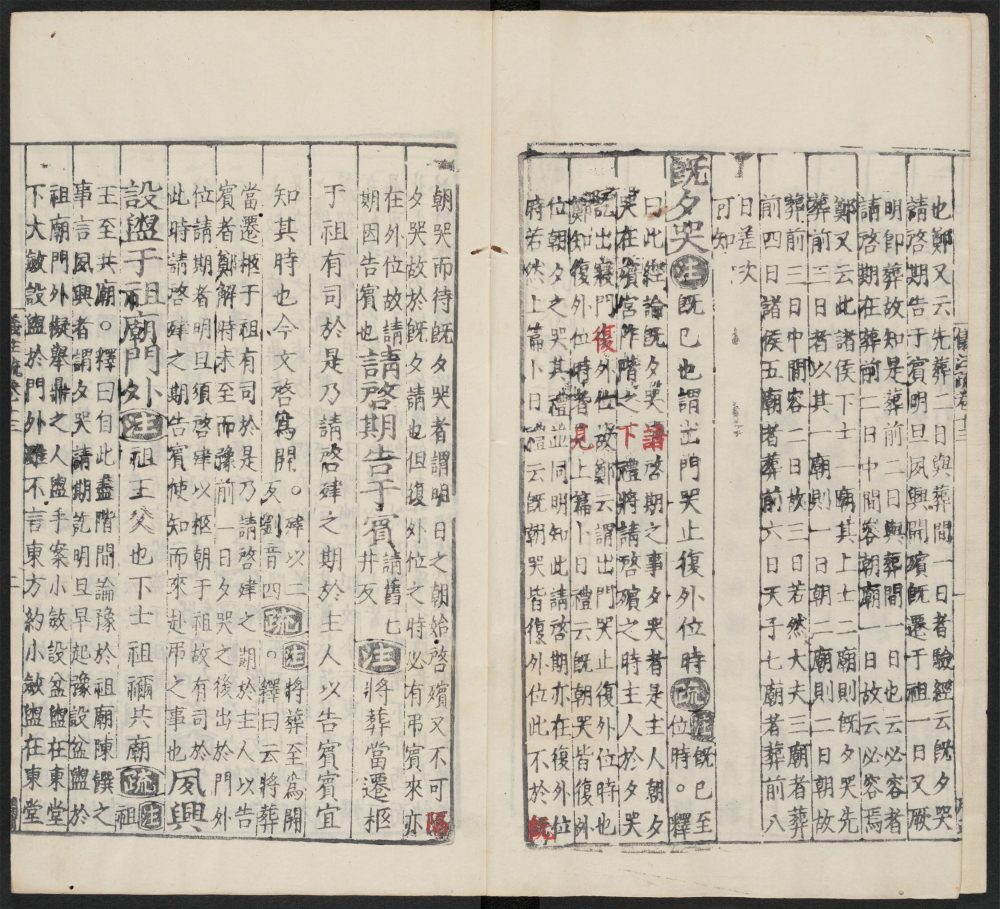 也鄭又云先葬二日與葬間一日者驗經云既夕哭
請啓期告于賓明旦夙興開殯既遷于祖一日又厥
明即葬故知是葬前二日與葬間一日也云必容者
請啓期在葬前二日中間容朝廟一日故云必容焉
鄭又云此諸侯下士一廟其上士二廟則既夕哭先
葬前三日者以其一廟則一日朝二廟則二日朝故
葬前三日中間容二日故三日若然大夫三廟者葬
前四日諸侯五廟者葬前六日天子七廟者葬前八
日差次
可知
既夕哭注既已也謂出門哭止復外位時疏注既已至
位時。釋
曰此經論既夕哭請啓期之事夕哭者是主人朝夕
哭在殯宮阼階之下禮將請啓殯之時主人於夕哭
訖出寢門復外位故鄭云謂出門哭止復外位時也
鄭知復外位時者見上篇卜日禮云既朝哭皆復外
位朝夕之哭其禮並同明知此請啓期亦在復外位
時若然上篇卜日禮云既朝哭皆復外位此不於既
朝哭而待既夕哭者謂明日之朝始啓殯又不可隔
夕哭故於既夕請也但復外位之時必有弔賓來亦
在外位故請
期因告賓也請啓期告于賓請舊七
井反注將葬當遷柩
于祖有司於是乃請啓肂之期於主人以告賓賓宜
知其時也今文啓爲開。肂以二
反劉音四疏注將葬至爲開
。釋曰云將葬
當遷柩于祖有司於是乃請啓肂之期於主人以告
賓者鄭解時未至而豫前一日夕哭之後出於門外
位請期者明旦須啓肂以柩朝于祖故有司於
此時請啓肂之期告賓使知而來赴弔之事也夙興
設盥于祖廟門外注祖王父也下士祖禰共廟疏注祖
王至共廟。釋曰自此盡階間論豫於祖廟陳饌之
事言夙興者謂夕哭請期訖明旦早起豫設盆盥於
祖廟門外擬舉鼎之人盥手案小斂設盆盥在東堂
下大斂設盥於門外雖不言東方約小斂盥在東堂